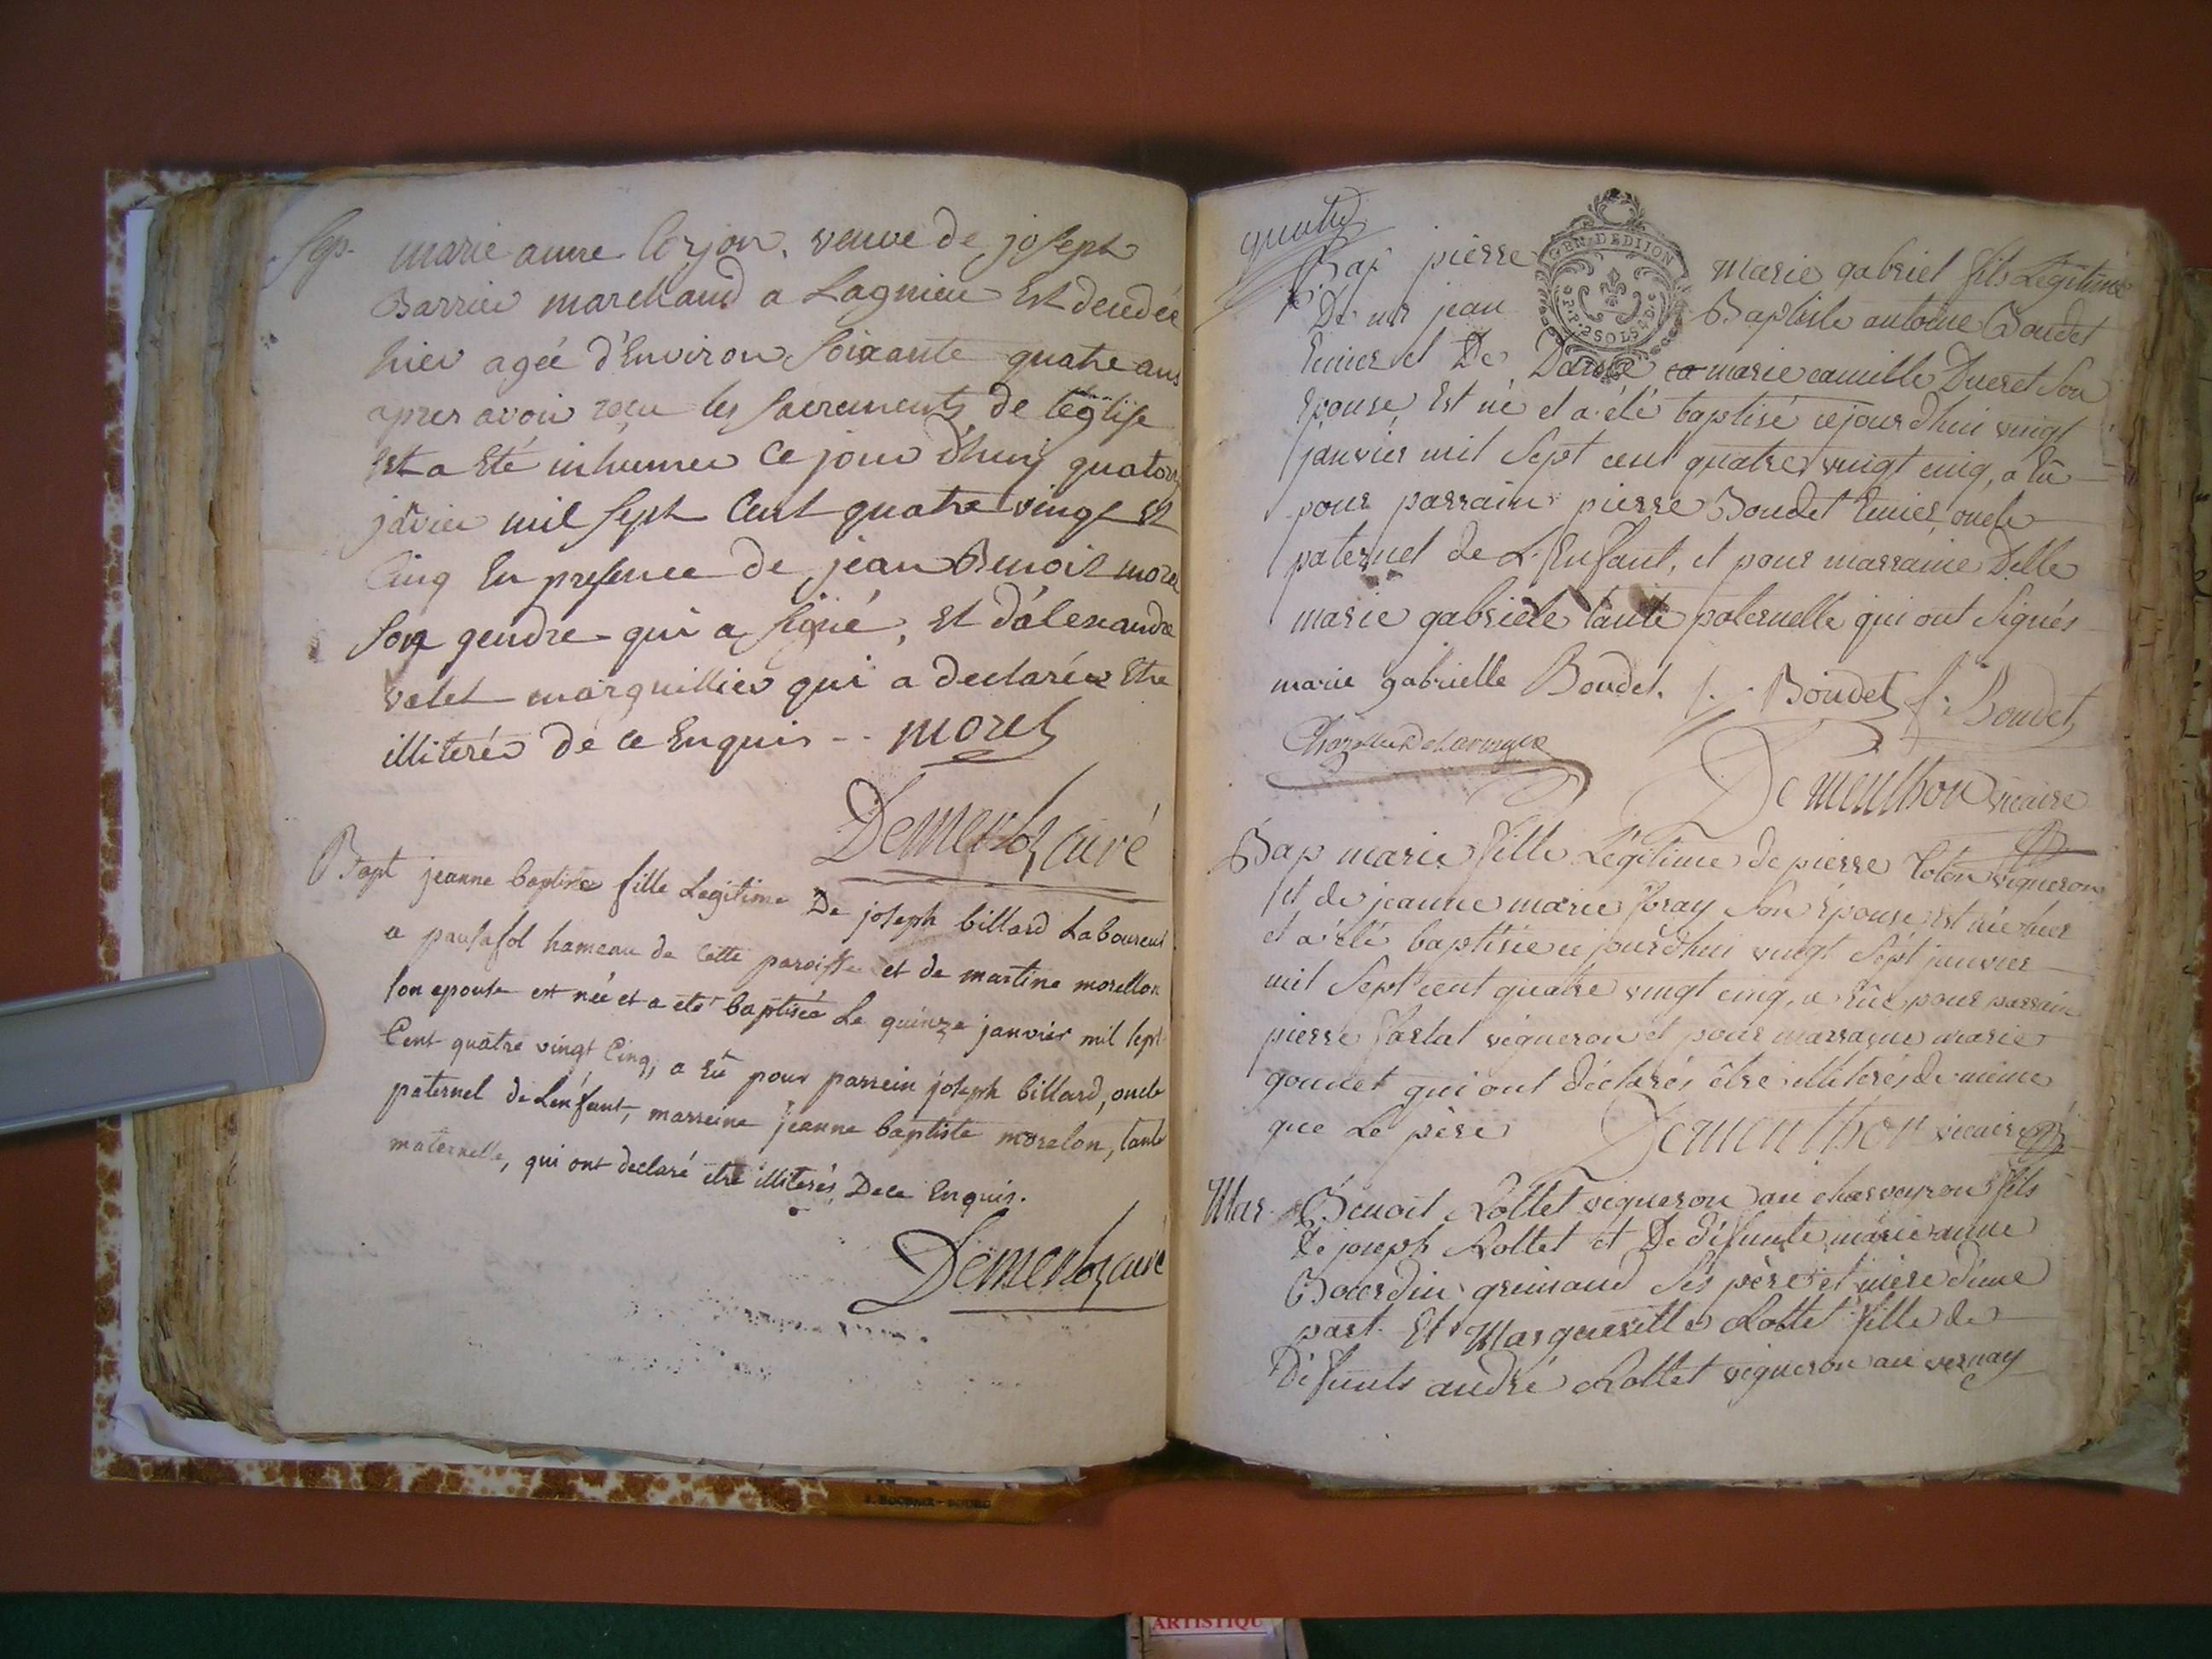 Sep. marie anne Corjon, veuve de joseph
Barrier marchand a Lagnieu Est decedée
hier agée d'Environ soixante quatre ans
apres avoir reçu les sacrements de l'église
Et a Eté inhumée Ce jour d'huy quatorze
javier mil sept Cent quatre vingt Et
Cinq En presence de jean Benoit morel
son gendre qui a signé, Et d'alexandre
valet marguillier qui a declaré Etre
illiteré de ce Enquis -- morel
Dementhon curé
Bapt jeanne baptiste fille Legitime De joseph billard Laboureur
a pausafol hameau de Cette paroisse et de martine morellon
son epouse est née et a eté baptisée Le quinze janvier mil sept
Cent quatre vingt Cinq, a Eü pour parrein joseph billard, oncle
paternel de L'enfant, marreine jeanne baptiste morelon, tante
maternelle, qui ont declaré etre illiterés De ce Enquis.
Dementhon curé
quatre
GEN. DE DIJON
P.P. 2 SOLS 4 D.
Bap pierre marie gabriel fils Légitime
De mr jean Baptiste antoine Boudet
et De Dame marie camille Ducret Son
Epouse, Est né et a été baptisé cejourd'hui vingt
janvier mil Sept cent quatre vingt cinq, a Eû
pour parrain pierre Boudet oncle
paternel de L'Enfant, et pour marraine Delle
marie gabriele tante paternelle qui ont Signés
marie gabrielle Boudet. Boudet f: Boudet
Dementhon vicaire
Bap marie fille Légitime de pierre Coton vigneron
et de jeanne marie Son Epouse est née hier
et a été baptisée cejourd'hui vingt Sept janvier
mil Sept cent quatre vingt cinq, a Eüe pour parrain
pierre vigneron et pour marraine marie
gonnet qui ont déclarés être illiterés de même
que Le père Dementhon vicaire
Mar. Benoit Rollet vigneron au charveyron fils
De joseph Rollet et De défunte marie anne
Bourdin grimaud Ses père et mère d'une
part. Et Margueritte Rollet fille de
Défunts andré Rollet vigneron au vernay
J. ROCHAIX - BOURG
ARTISTIQU